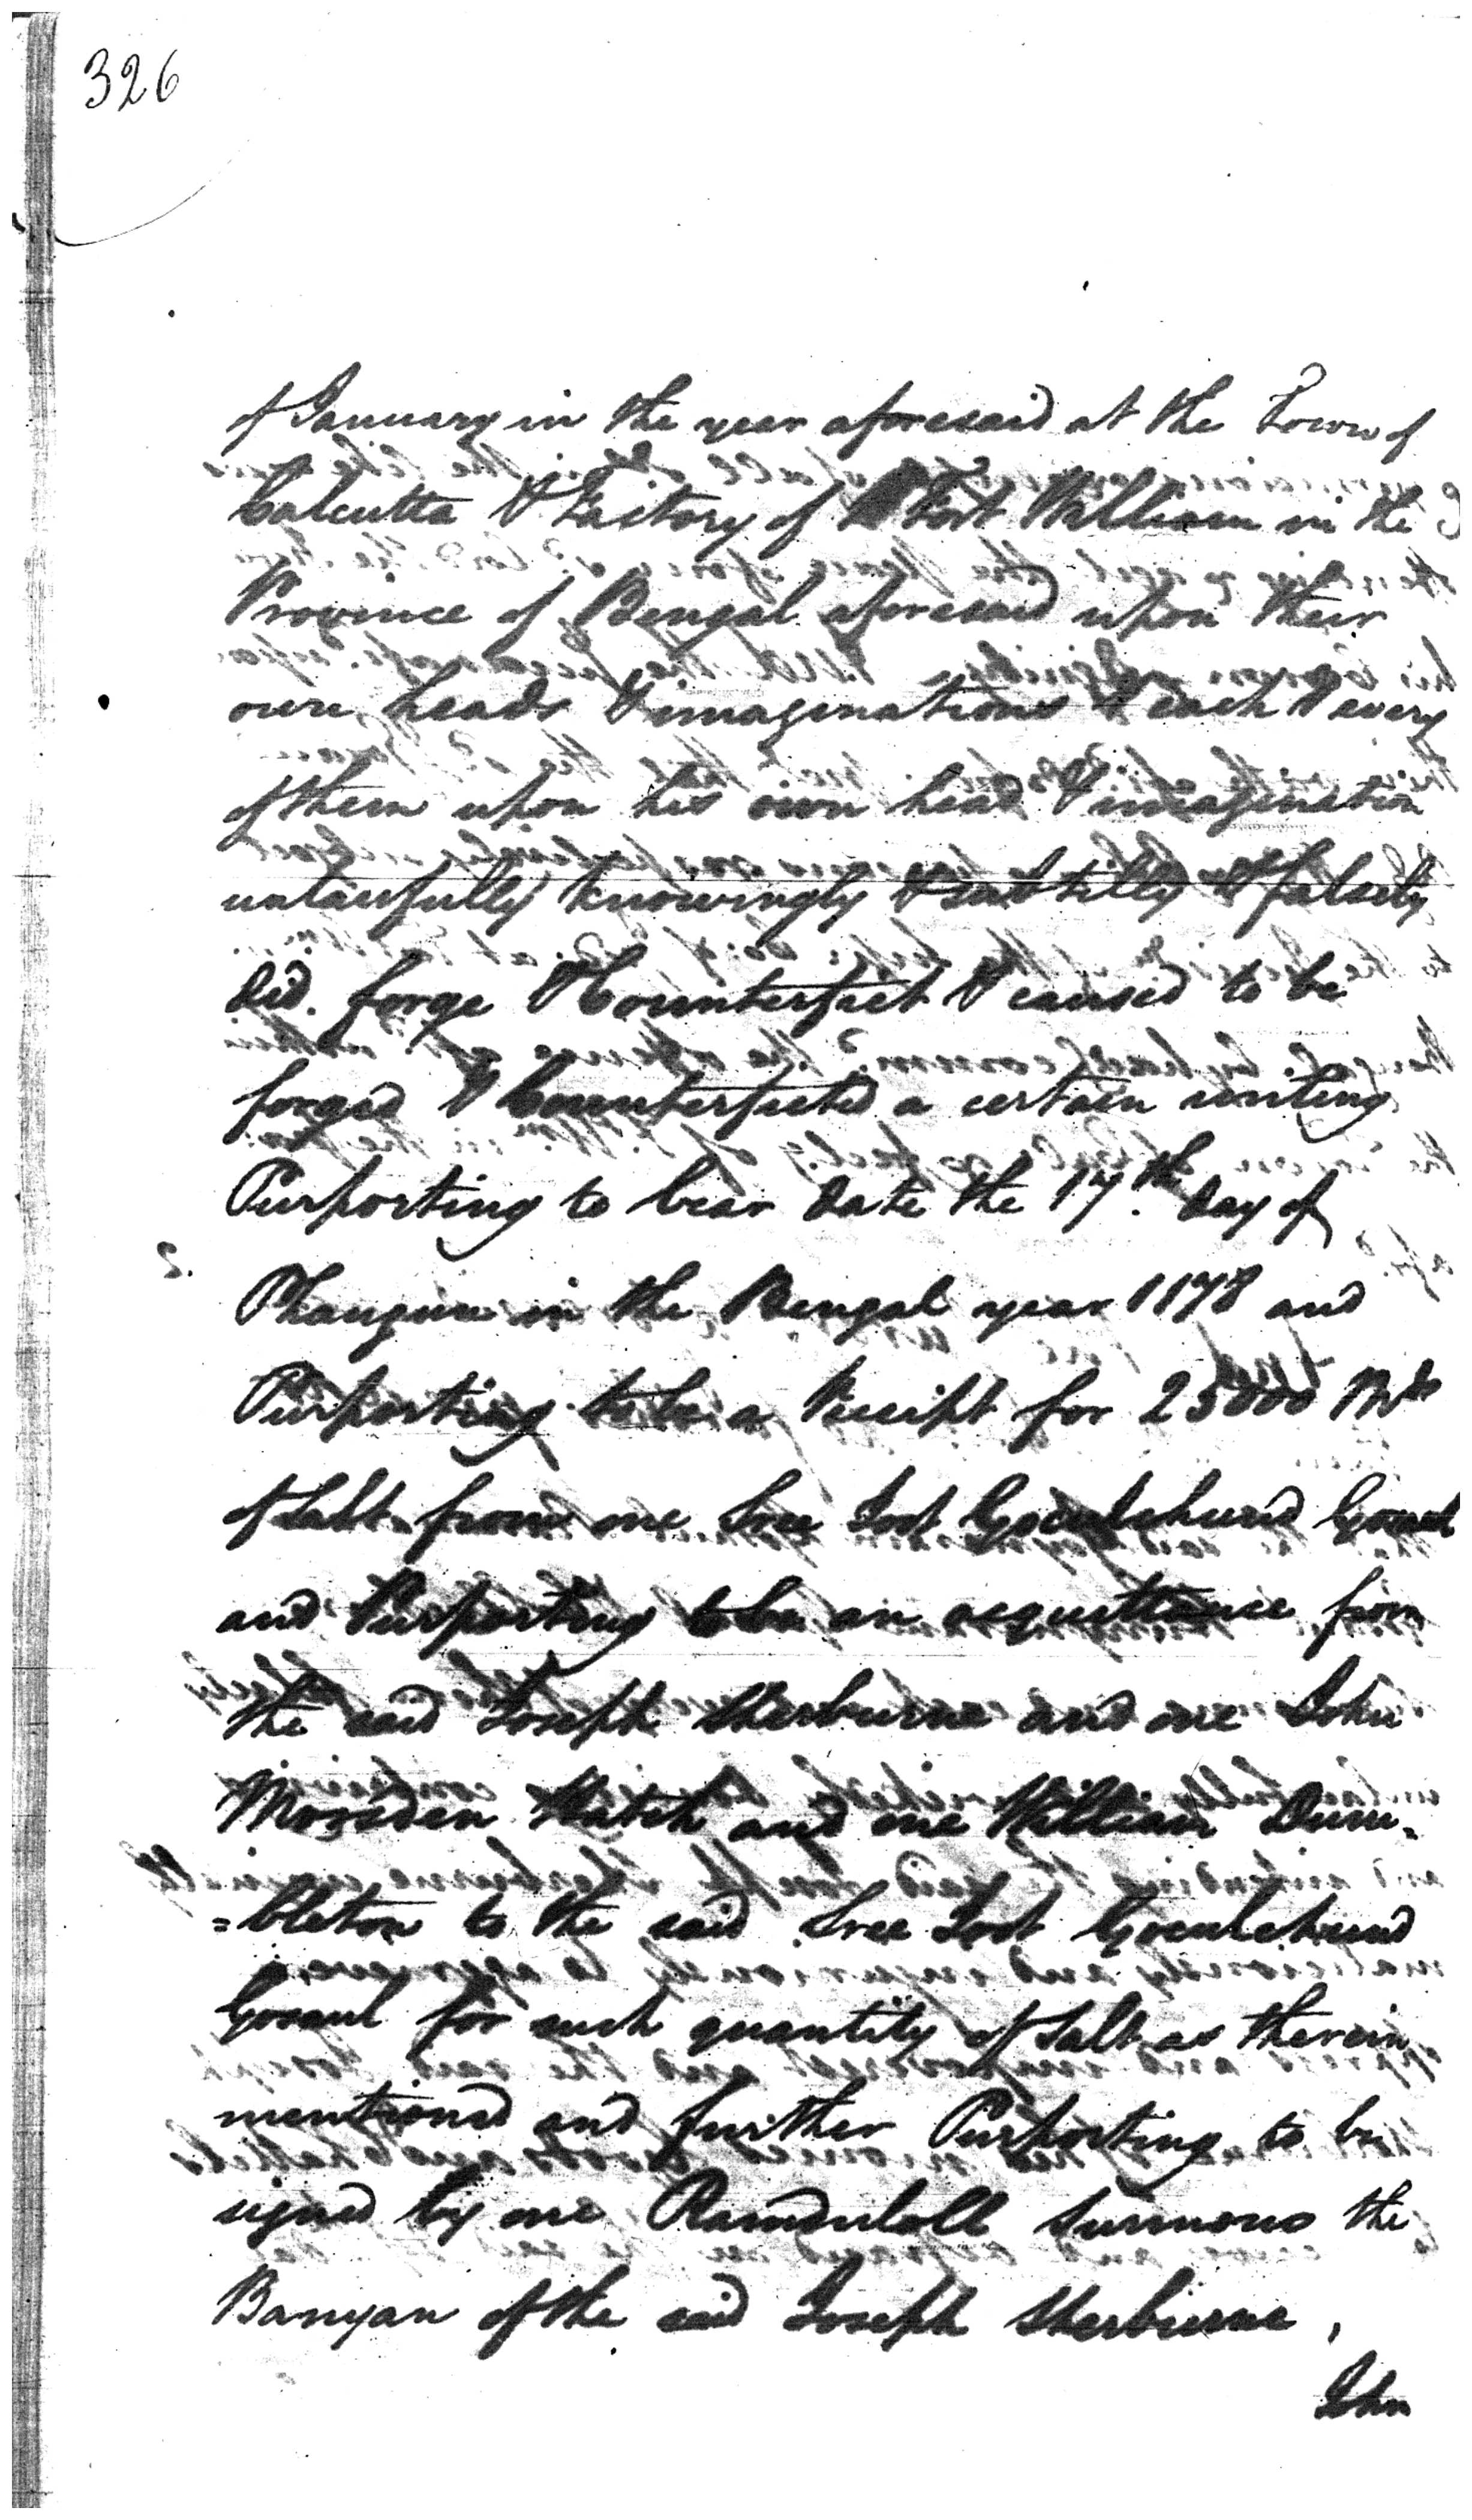 326
of January in the year aforesaid at the Town of
Calcutta & Factory of Fort William in the
Province of Bengal aforesaid upon their
own heads & imaginations & each & every
of them upon his own head & imagination
unlawfully knowingly & subtilly & falsely
did forge & Counterfeit & caused to be
forged & Counterfeited a certain writing
Purporting to bear date the 17th. day of
Phaugun in the Bengal year 1178 and
Purporting to be a Receipt for 25000 Mds
of Salt from one Sree Joot Goculchund Gosaul
and Purporting to be an acquittance from
the said Joseph Sherburne and one John
Morsden Hatch and one William Dum-
=bleton to the said Sree Joot Goculchund
Gosaul for such quantity of Salt as therein
mentioned and further Purporting to be
signed by one Ramdulall Surmono the
Banyan of the said Joseph Sherburne,
John